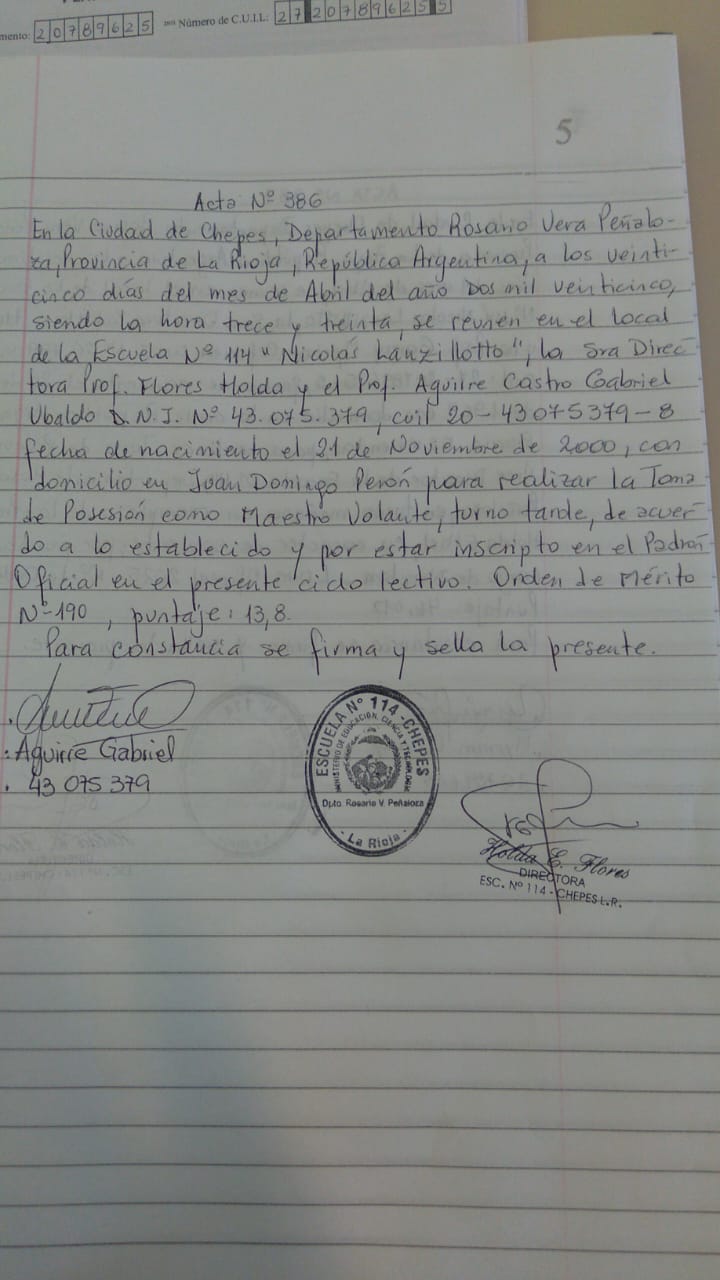 mento: 20789625 Número de C.U.I.L: 27 20789625 5
5
Acta Nº 386
En la Ciudad de Chepes, Departamento Rosario Vera Peñalo-
za, Provincia de La Rioja, República Argentina, a los veinti-
cinco días del mes de Abril del año Dos mil veinticinco,
siendo la hora trece y treinta, se reunen en el local
de la Escuela Nº 114 "Nicolás Lanzillotto", la Sra Direc
tora Prof. Flores Holda y el Prof. Aguirre Castro Gabriel
Ubaldo D.N.I. Nº 43.075.379, cuil 20-43075379-8
fecha de nacimiento el 21 de Noviembre de 2000, con
domicilio en Juan Domingo Perón para realizar la Toma
de Posesión como Maestro Volante, turno tarde, de acuer-
do a lo establecido y por estar inscripto en el Padrón
Oficial en el presente ciclo lectivo. Orden de Mérito
Nº-190, puntaje: 13,8.
Para constancia se firma y sella la presente.
Aguirre Gabriel
43 075 379
ESCUELA Nº 114 - CHEPES
MINISTERIO DE EDUCACIÓN, CIENCIA Y TECNOLOGÍA
Dpto. Rosario V. Peñaloza
- La Rioja -
Holda E. Flores
DIRECTORA
ESC. Nº 114 - CHEPES L.R.